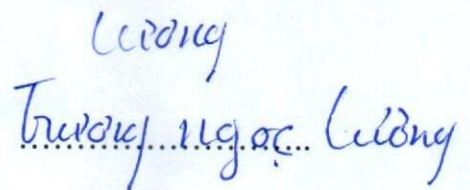 Cường
Trương Ngọc Cường